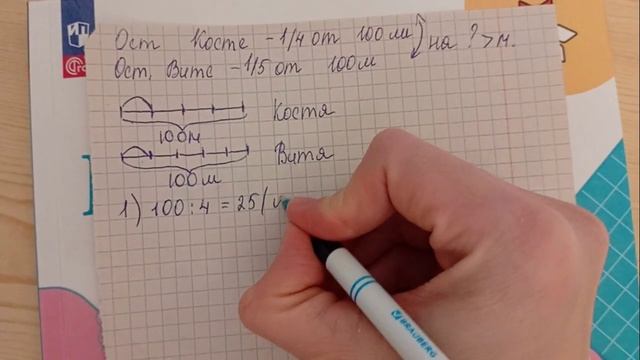 Ост Косте - 1/4 от 100 м
Ост, Вите - 1/5 от 100 м
на ? > м.
Костя
100м
Витя
100м
1) 100 : 4 = 25 (м
BRAUBERG